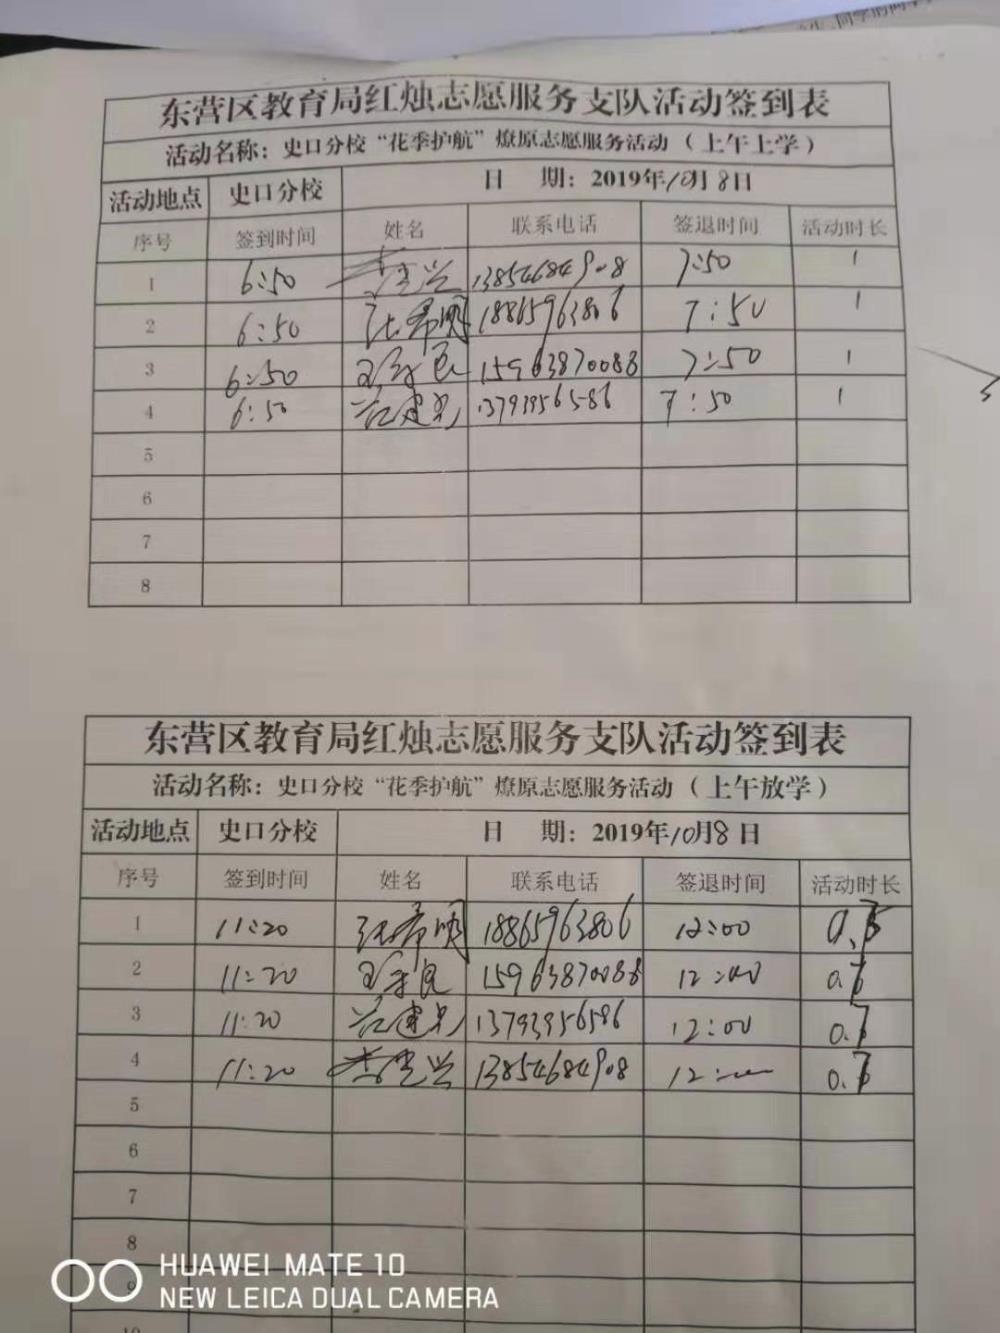 东营区教育局红烛志愿服务支队活动签到表
活动名称：史口分校“花季护航”燎原志愿服务活动（上午上学）
活动地点 史口分校 日 期：2019年10月8日
序号 签到时间 姓名 联系电话 签退时间 活动时长
1 6:50 13854684908 7:50 1
2 6:50 张希明 18865963806 7:50 1
3 6:50 15963870088 7:50 1
4 6:50 13793956586 7:50 1
5
6
7
8
东营区教育局红烛志愿服务支队活动签到表
活动名称：史口分校“花季护航”燎原志愿服务活动（上午放学）
活动地点 史口分校 日 期：2019年10月8日
序号 签到时间 姓名 联系电话 签退时间 活动时长
1 11:20 张希明 18865963806 12:00
2 11:20 15963870088 12:00
3 11:20 13793956586 12:00
4 11:20 13854684908 12:00
5
6
7
8
9
10
HUAWEI MATE 10
NEW LEICA DUAL CAMERA